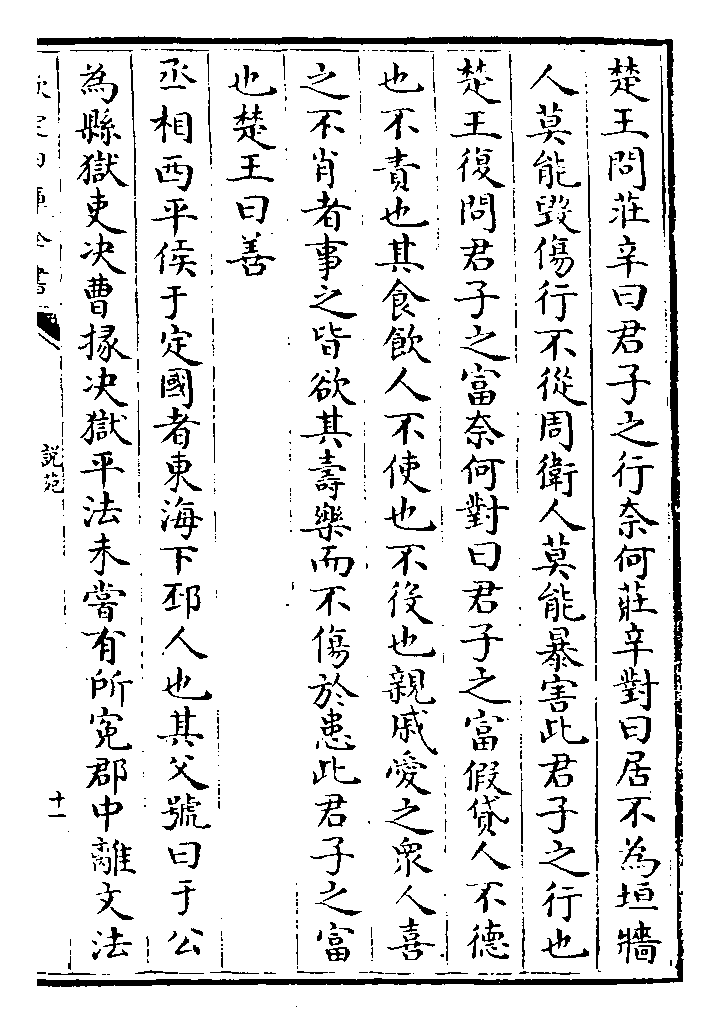 楚王問莊辛曰君子之行奈何莊辛對曰居不為垣牆
人莫能毀傷行不從周衛人莫能暴害此君子之行也
楚王復問君子之富奈何對曰君子之富假貸人不德
也不責也其食飲人不使也不役也親戚愛之衆人喜
之不肖者事之皆欲其壽樂而不傷於患此君子之富
也楚王曰善
丞相西平侯于定國者東海下邳人也其父號曰于公
為縣獄吏决曹掾决獄平法未嘗有所寃郡中離文法
欽定四庫全書
說苑
十一